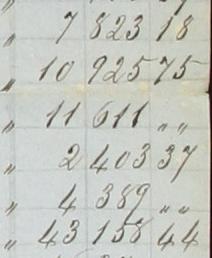 " 7 823 18
" 10 925 75
" 11 611 " "
" 2 403 37
" 4 389 " "
" 43 158 44